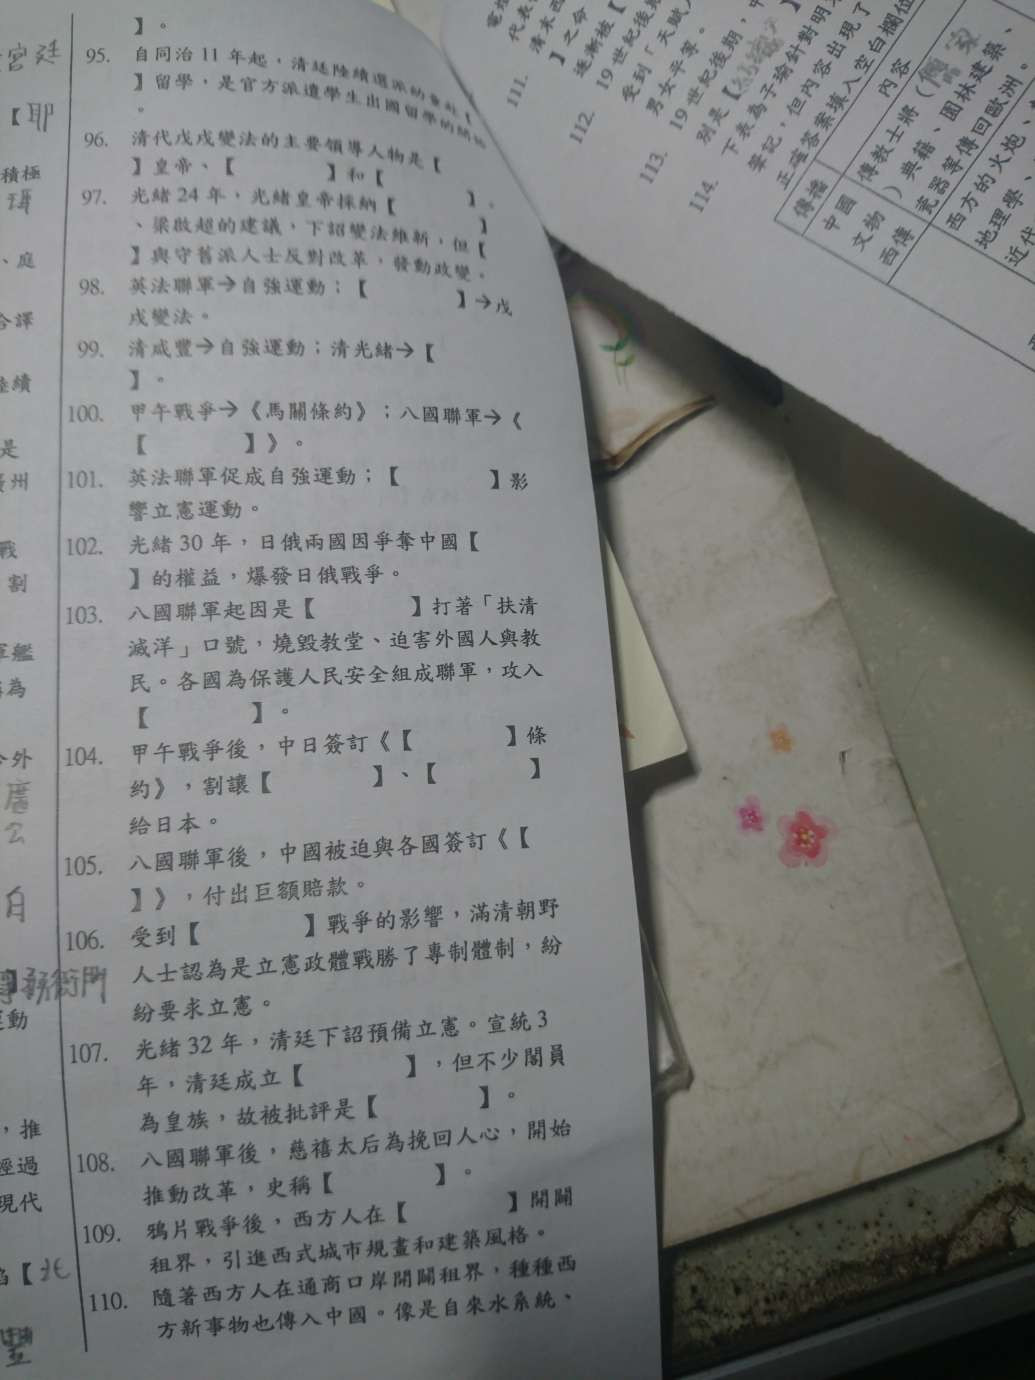 宮廷
【耶
積極
珥
、庭
合譯
陸續
是
廣州
戰
割
軍艦
為
外
公
自
務衙門
運動
，推
經過
現代
【北
】。
95. 自同治11年起，清廷陸續選派幼童赴【
】留學，是官方派遣學生出國留學的開始
。
96. 清代戊戌變法的主要領導人物是【
】皇帝、【　　】和【　　】。
97. 光緒24年，光緒皇帝採納【　　】
、梁啟超的建議，下詔變法維新，但【
】與守舊派人士反對改革，發動政變。
98. 英法聯軍→自強運動；【　　】→戊
戌變法。
99. 清咸豐→自強運動；清光緒→【
】。
100. 甲午戰爭→《馬關條約》；八國聯軍→《
【　　】》。
101. 英法聯軍促成自強運動；【　　】影
響立憲運動。
102. 光緒30年，日俄兩國因爭奪中國【
】的權益，爆發日俄戰爭。
103. 八國聯軍起因是【　　】打著「扶清
滅洋」口號，燒毀教堂、迫害外國人與教
民。各國為保護人民安全組成聯軍，攻入
【　　】。
104. 甲午戰爭後，中日簽訂《【　　】條
約》，割讓【　　】、【　　】
給日本。
105. 八國聯軍後，中國被迫與各國簽訂《【
】》，付出巨額賠款。
106. 受到【　　】戰爭的影響，滿清朝野
人士認為是立憲政體戰勝了專制體制，紛
紛要求立憲。
107. 光緒32年，清廷下詔預備立憲。宣統3
年，清廷成立【　　】，但不少閣員
為皇族，故被批評是【　　】。
108. 八國聯軍後，慈禧太后為挽回人心，開始
推動改革，史稱【　　】。
109. 鴉片戰爭後，西方人在【　　】開闢
租界，引進西式城市規畫和建築風格。
110. 隨著西方人在通商口岸開闢租界，種種西
方新事物也傳入中國。像是自來水系統、
代表
清末西
】之命
逐漸被【
111. 19世紀後
受到「天賦
男女平等。
112. 19世紀後期，
別是【
113. 下表為子瑜針對明
筆記，但內容出現了
正確答案填入空白欄位
114.
傳播
內容
中國
文物
西傳
傳教士將（儒家
）典籍、園林建築、
瓷器等傳回歐洲。
西方的火炮、
地理學、
近代